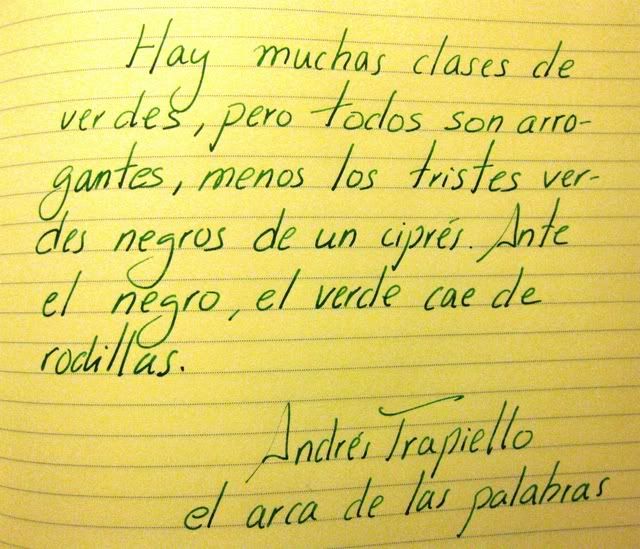 Hay muchas clases de
verdes, pero todos son arro-
gantes, menos los tristes ver-
des negros de un ciprés. Ante
el negro, el verde cae de
rodillas.
Andrés Trapiello
el arca de las palabras